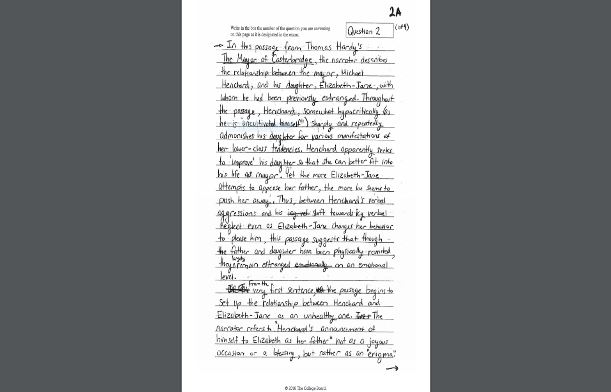 2A
Write in the box the number of the question you are answering
on this page as it is designated in the exam.
Question 2
(1 of 4)
→ In this passage from Thomas Hardy's
The Mayor of Casterbridge, the narrator describes
the relationship between the mayor, Michael
Henchard, and his daughter, Elizabeth-Jane, with
whom he had been previously estranged. Throughout
the passage, Henchard, somewhat hypocritically (as
he is "uncultivated himself") sharply and repeatedly
admonishes his daughter for various manifestations of
her lower-class tendencies. Henchard apparently seeks
to 'improve' his daughter so that she can better fit into
his life as mayor. Yet the more Elizabeth-Jane
attempts to appease her father, the more he seems to
push her away. Thus, between Henchard's verbal
aggressions and his shift towards verbal
neglect even as Elizabeth-Jane changes her behavior
to please him, this passage suggests that though
the father and daughter have been physically reunited,
they remain estranged on an emotional
level.
from the
very first sentence, the passage begins to
set up the relationship between Henchard and
Elizabeth-Jane as an unhealthy one. The
narrator refers to "Henchard's announcement of
himself to Elizabeth as her father" not as a joyous
occasion or a blessing, but rather as an "enigma."
→
© 2016 The College Board